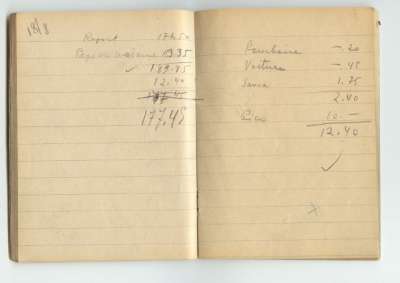 18/8
Report 176.50
13.35
✓ 189.85
12.40
177.45
Pourboire -.20
Voiture -.45
1.75
2.40
10.—
12.40
✓
x